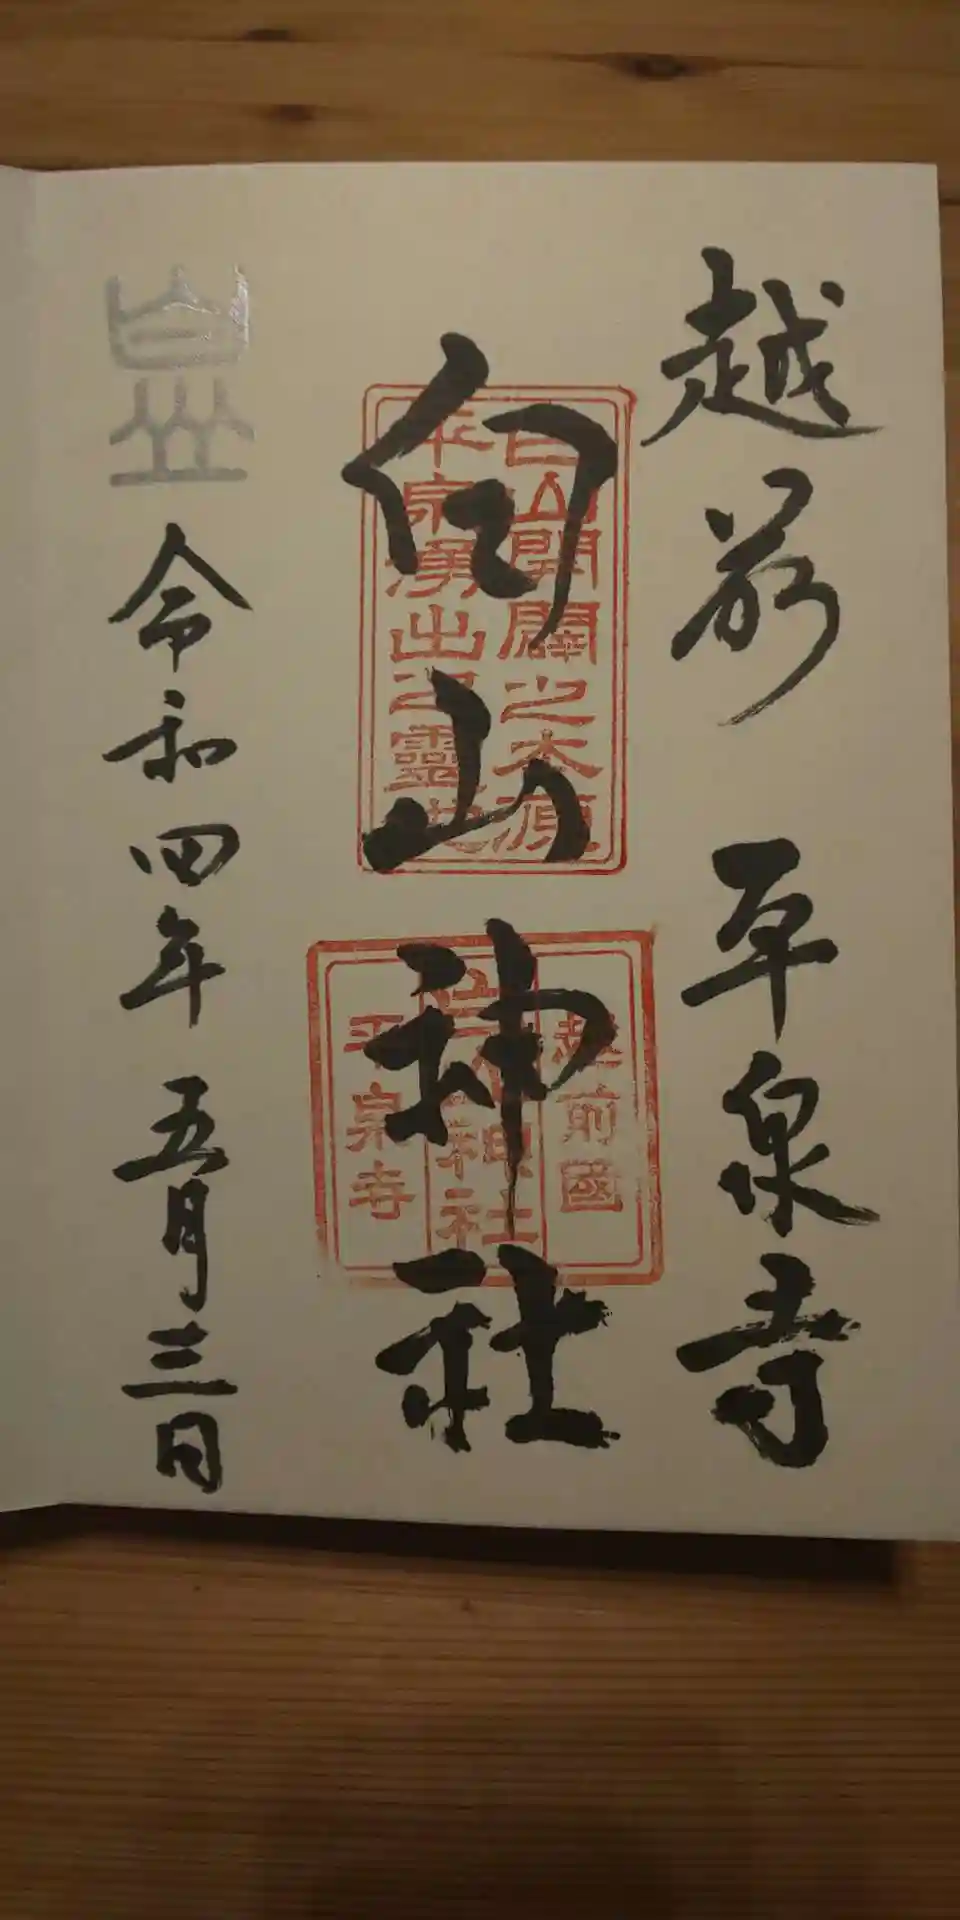 越前 平泉寺
白山神社
白山開闢之本源
平泉湧出之霊地
越前國
白山神社
平泉寺
令和四年五月三日